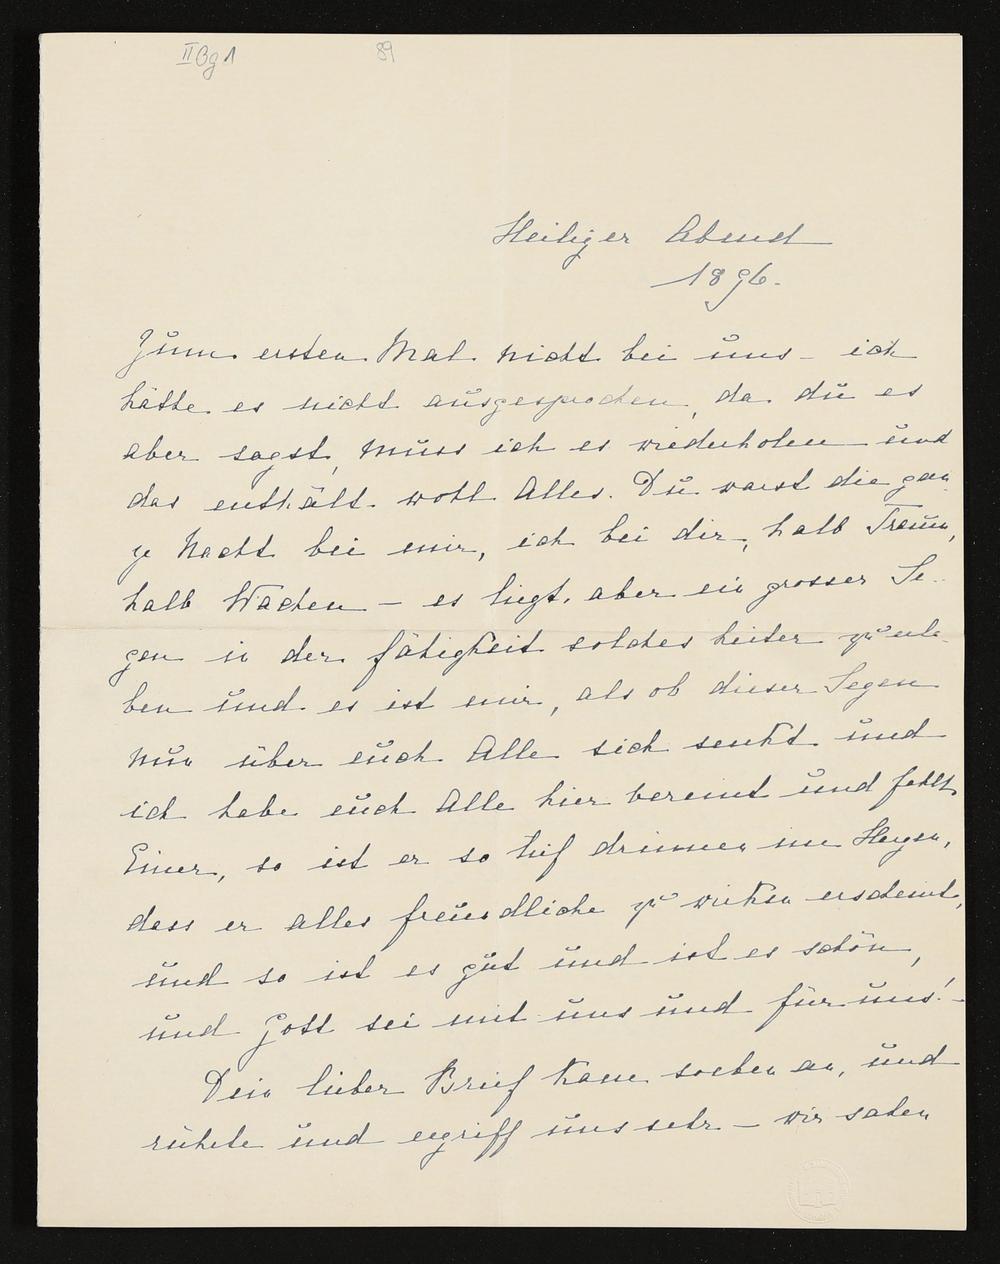 II Bg 1 89
Heiliger Abend
1896.
Zum ersten Mal nicht bei uns – ich
hätte es nicht ausgesprochen, da du es
aber sagst, muss ich es wiederholen und
das enthält wohl Alles. Du warst die gan
ze Nacht bei mir, ich bei dir, halb Traum,
halb Wachen – es liegt aber ein grosser Se-
gen in der Fähigkeit solches heiter zu erle-
ben und es ist mir, als ob dieser Segen
nun über euch Alle sich senkt und
ich habe euch Alle hier vereint und fehlt
Einer, so ist er so tief drinnen im Herzen,
dass er alles freundliche zu wirken erscheint,
und so ist es gut und ist es schön,
und Gott sei mit uns und für uns! –
Dein lieber Brief kam soeben an, und
rührte und ergriff uns sehr – wir sahen